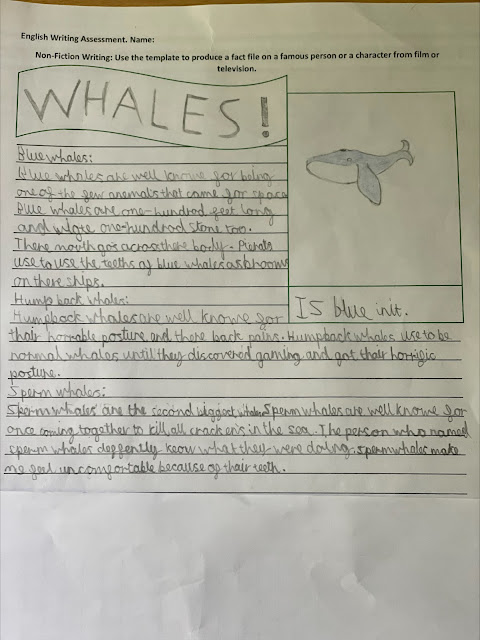 English Writing Assessment. Name:
Non-Fiction Writing: Use the template to produce a fact file on a famous person or a character from film or
television.
WHALES!
Blue whales:
Blue whales are well knowe for being
one of the few anemals that came for space
Blue whales are one-hundrod feet long
and were one-hundrod stone too.
There mouth gos across there body. Pierats
use to use the teeths of blue whales as brooms
on there ships.
IS blue init.
Hump back whales:
Humpback whales are well knowe for
thair horrable posture and there back pains. Humpback whales use to be
normal whales until they discovered gaming and got thair horrific
posture.
Sperm whales:
Sperm whales are the second biggest whales. Sperm whales are well knowe for
once coming together to kill all crackens in the sea. The person who named
sperm whales deffently knew what they were doing. Sperm whales make
me feel uncomfortable because of thair teeth.